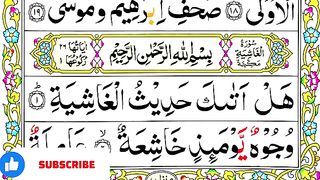 الْاُوْلٰى ۝١٨ صُحُفِ اِبْرٰهِيْمَ وَمُوْسٰى ۝١٩
سُوْرَةُ الْغَاشِيَةِ مَكِّيَّةٌ
بِسْمِ اللّٰهِ الرَّحْمٰنِ الرَّحِيْمِ
اٰيَاتُهَا ٢٦
رُكُوْعُهَا ١
هَلْ اَتٰىكَ حَدِيْثُ الْغَاشِيَةِ ۝١
وُجُوْهٌ يَّوْمَئِذٍ خَاشِعَةٌ ۝٢ عَامِلَةٌ
SUBSCRIBE